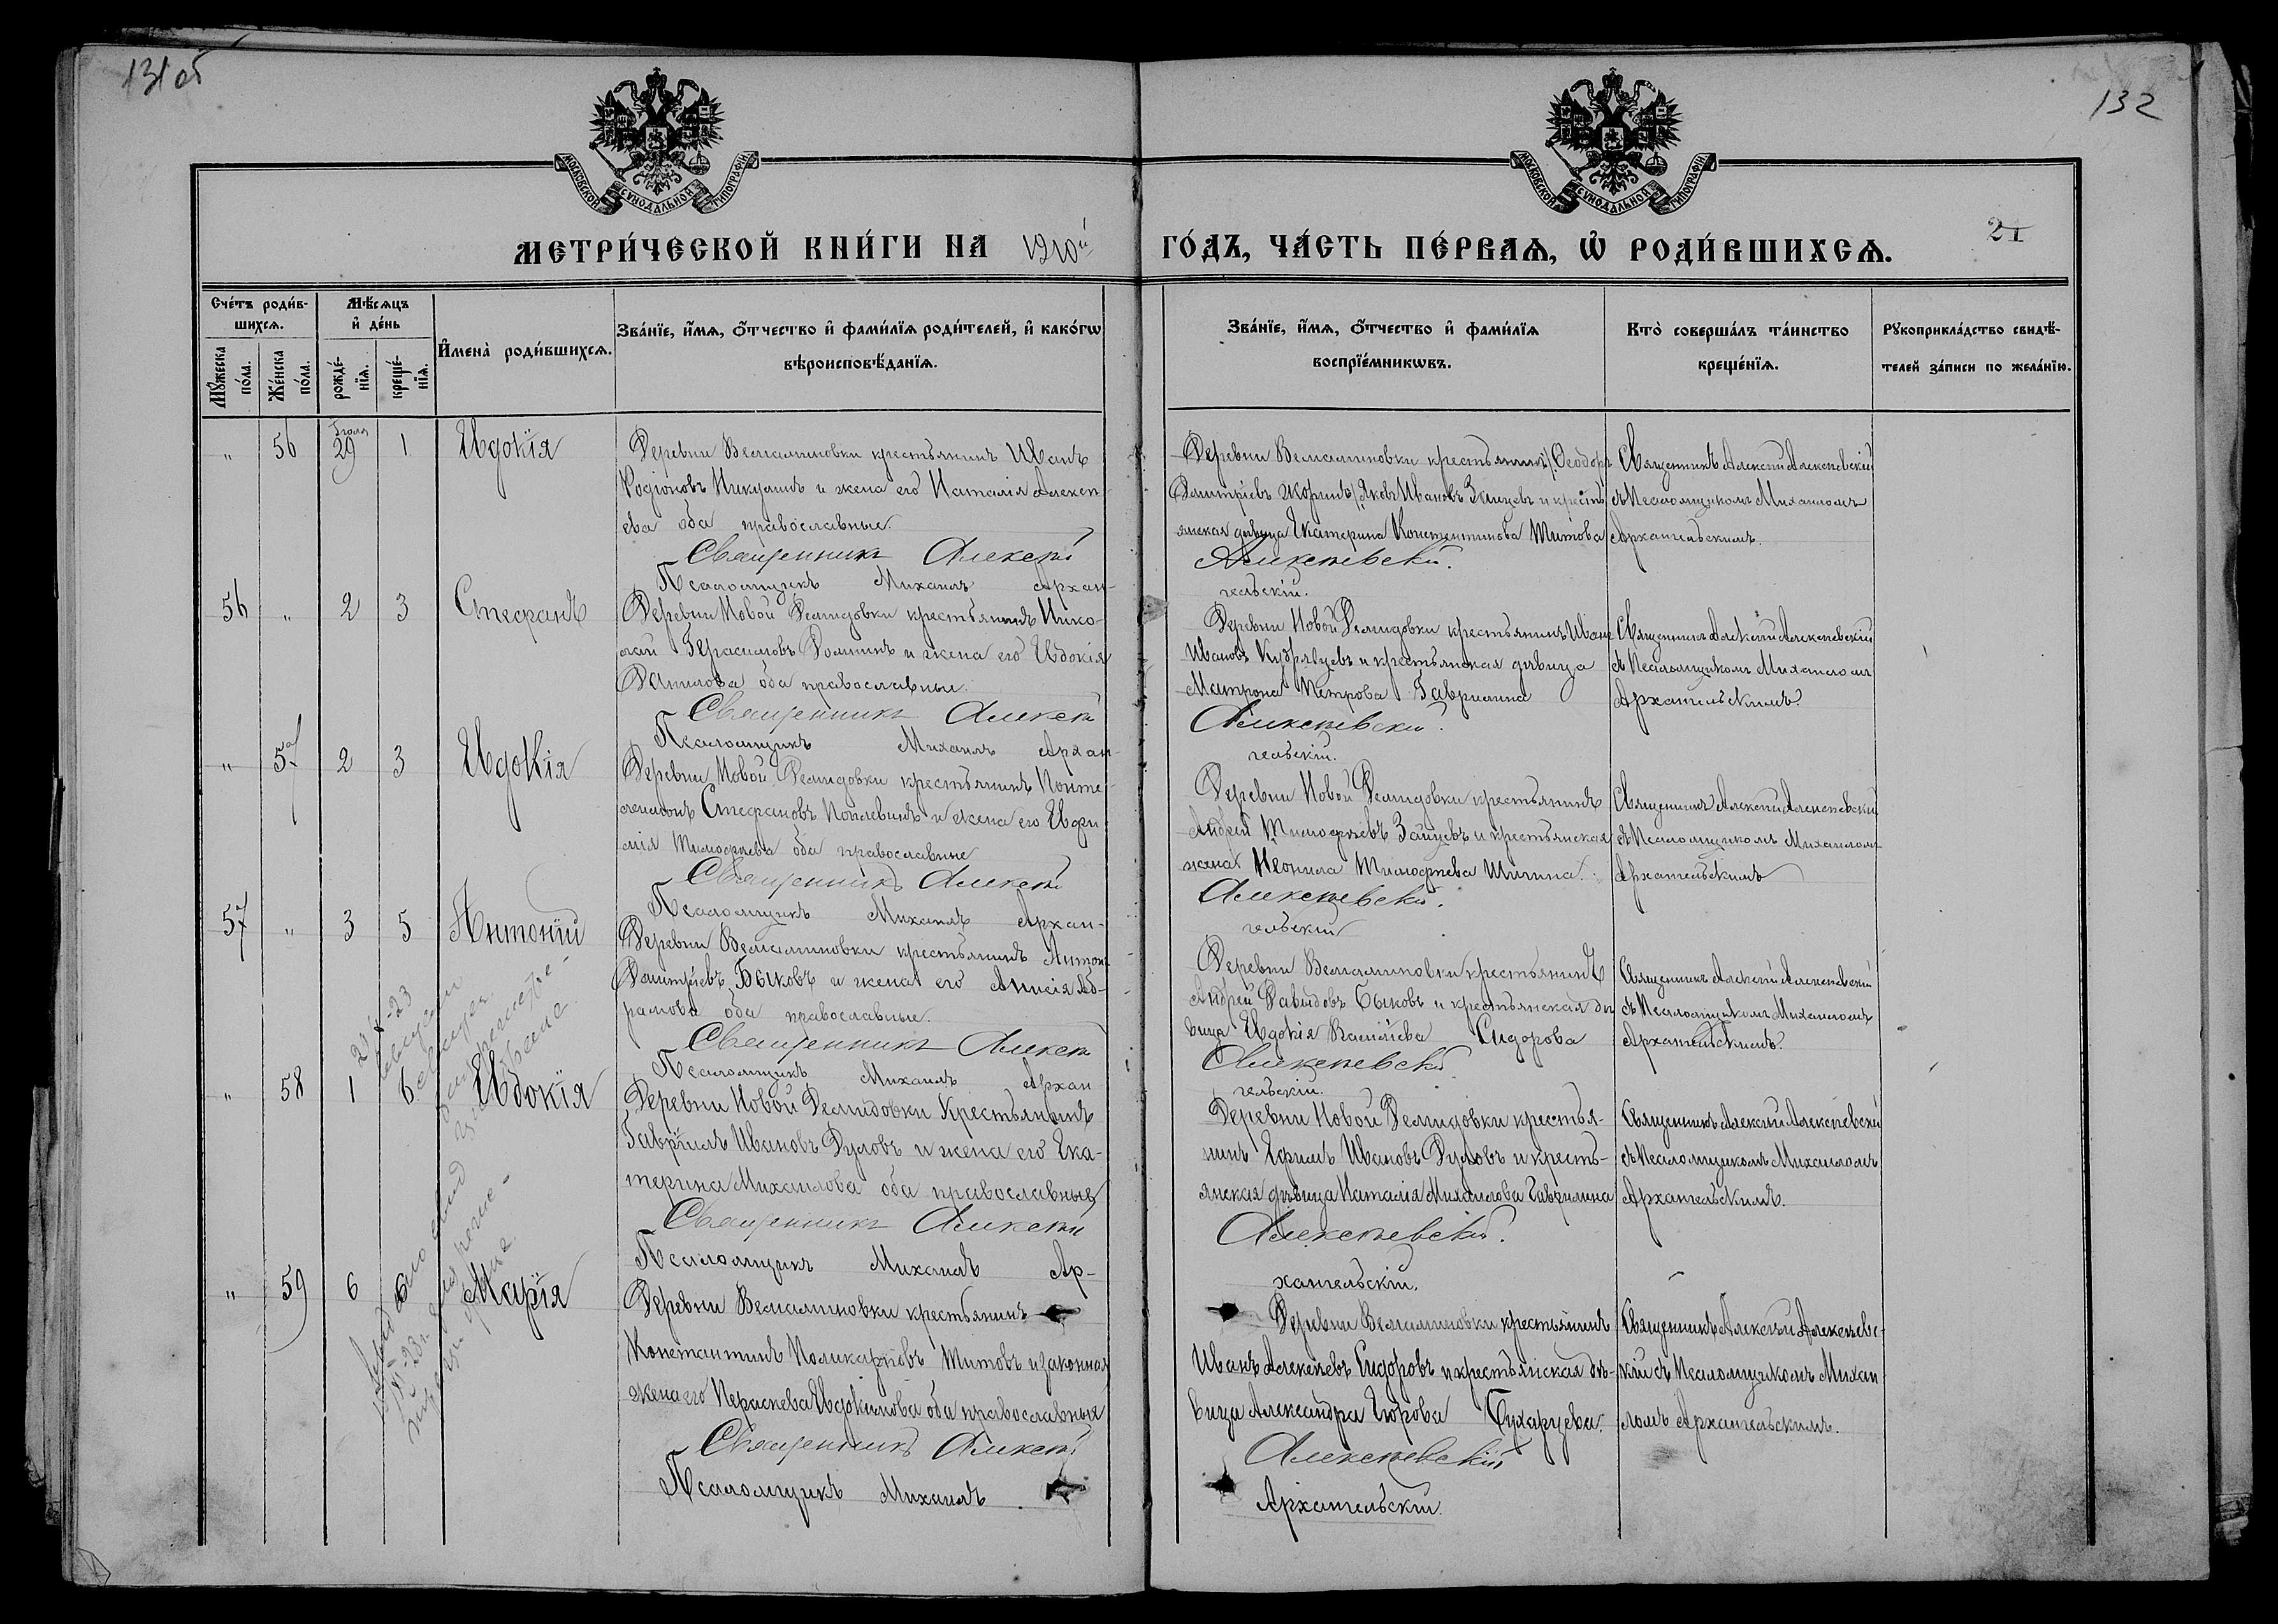 131 об
132
МОСКОВСКОЙ СѴНОДАЛЬНОЙ ТИПОГРАФІИ
МОСКОВСКОЙ СѴНОДАЛЬНОЙ ТИПОГРАФІИ
МЕТРИ́ЧЕСКОЙ КНИ́ГИ НА 1910й ГО́ДЪ, ЧА́СТЬ ПЕ́РВАѦ, Ѡ҆ РОДИ́ВШИХСѦ.
21
Сче́тъ роди́в-
шихсѧ.
Мꙋ́жеска по́ла.
Же́нска по́ла.
Мѣ́сѧцъ
и҆ де́нь
рожде́-
нїѧ.
креще́-
нїѧ.
И҆мена̀ роди́вшихсѧ.
Зва́нїе, и҆́мѧ, ѻ҆́тчество и҆ фами́лїѧ роди́телей, и҆ како́гѡ
вѣроисповѣ́данїѧ.
Зва́нїе, и҆́мѧ, ѻ҆́тчество и҆ фами́лїѧ
воспрїе́мникѡвъ.
Кто̀ соверша́лъ та́инство
креще́нїѧ.
Рꙋкоприкла́дство свидѣ́-
телей за́писи по жела́нїю.
" 56 Іюля 29 1 Евдокія
Деревни Вельяминовки крестьянинъ Иванъ
Родіоновъ Никулинъ и жена его Наталія Алексѣ-
ева оба православные.
Священникъ Алексѣй Алексѣевскій.
Псаломщикъ Михаилъ Архангельскій.
Деревни Вельяминовки крестьянинъ Ѳеодоръ
Димитріевъ Яковъ Ивановъ Зайцевъ и кресть
янская дѣвица Екатерина Константинова Титова
Священникъ Алексѣй Алексѣевскій
съ Псаломщикомъ Михаиломъ
Архангельскимъ.
56 " 2 3 Стефанъ
Деревни Новой Демидовки крестьянинъ Нико-
лай Герасимовъ Фоминъ и жена его Евдокія
Данилова оба православные.
Священникъ Алексѣй Алексѣевскій.
Псаломщикъ Михаилъ Архангельскій.
Деревни Новой Демидовки крестьянинъ Иванъ
Ивановъ Кудрявцевъ и крестьянская дѣвица
Матрона Петрова Гаврилина
Священникъ Алексѣй Алексѣевскій
съ Псаломщикомъ Михаиломъ
Архангельскимъ.
" 57 2 3 Евдокія
Деревни Новой Демидовки крестьянинъ Понте-
леимонъ Стефановъ и жена его Евфи-
мія Тимофѣева оба православные
Священникъ Алексѣй Алексѣевскій.
Псаломщикъ Михаилъ Архан-
гельскій
Деревни Новой Демидовки крестьянинъ
Андрей Тимофѣевъ Зайцевъ и крестьянская
жена Неонила Тимофѣева Шигина.
Священникъ Алексѣй Алексѣевскій
съ Псаломщикомъ Михаиломъ
Архангельскимъ
57 " 3 5 Антоній
Деревни Вельяминовки крестьянинъ Антонъ
Димитріевъ Быковъ и жена его Анисія Аб-
рамова оба православные.
Священникъ Алексѣй Алексѣевскій
Псаломщикъ Михаилъ Архан
гельскій.
Деревни Вельяминовки крестьянинъ
Андрей Давыдовъ Быковъ и крестьянская дѣ
вица Евдокія Сидорова
Священникъ Алексѣй Алексѣевскій
съ Псаломщикомъ Михаиломъ
Архангельскимъ.
" 58 1 6 Евдокія
Деревни Новой Демидовки Крестьянинъ
Гавріилъ Ивановъ Дуловъ и жена его Ека-
терина Михаилова оба православные
Священникъ Алексѣй Алексѣевскій.
Псаломщикъ Михаилъ Ар-
хангельскій.
Деревни Новой Демидовки крестья-
нинъ Ефимъ Ивановъ Дуловъ и кресть-
янская дѣвица Наталія Михаилова Гаврилина
Священникъ Алексѣй Алексѣевскій
съ Псаломщикомъ Михаиломъ
Архангельскимъ.
" 59 6 6 Марія
Деревни Вельяминовки крестьянинъ
Константинъ Поликарповъ Титовъ и законная
жена его Параскева Евдокимова оба православные
Священникъ Алексѣй Алексѣевскій
Псаломщикъ Михаилъ Архангельскій.
Деревни Вельяминовки крестьянинъ
Иванъ Алексѣевъ Сидоровъ и крестьянская дѣ-
вица Александра Егорова Бухарцева.
Священникъ Алексѣй Алексѣевс-
кій съ Псаломщикомъ Михаи
ломъ Архангельскимъ.